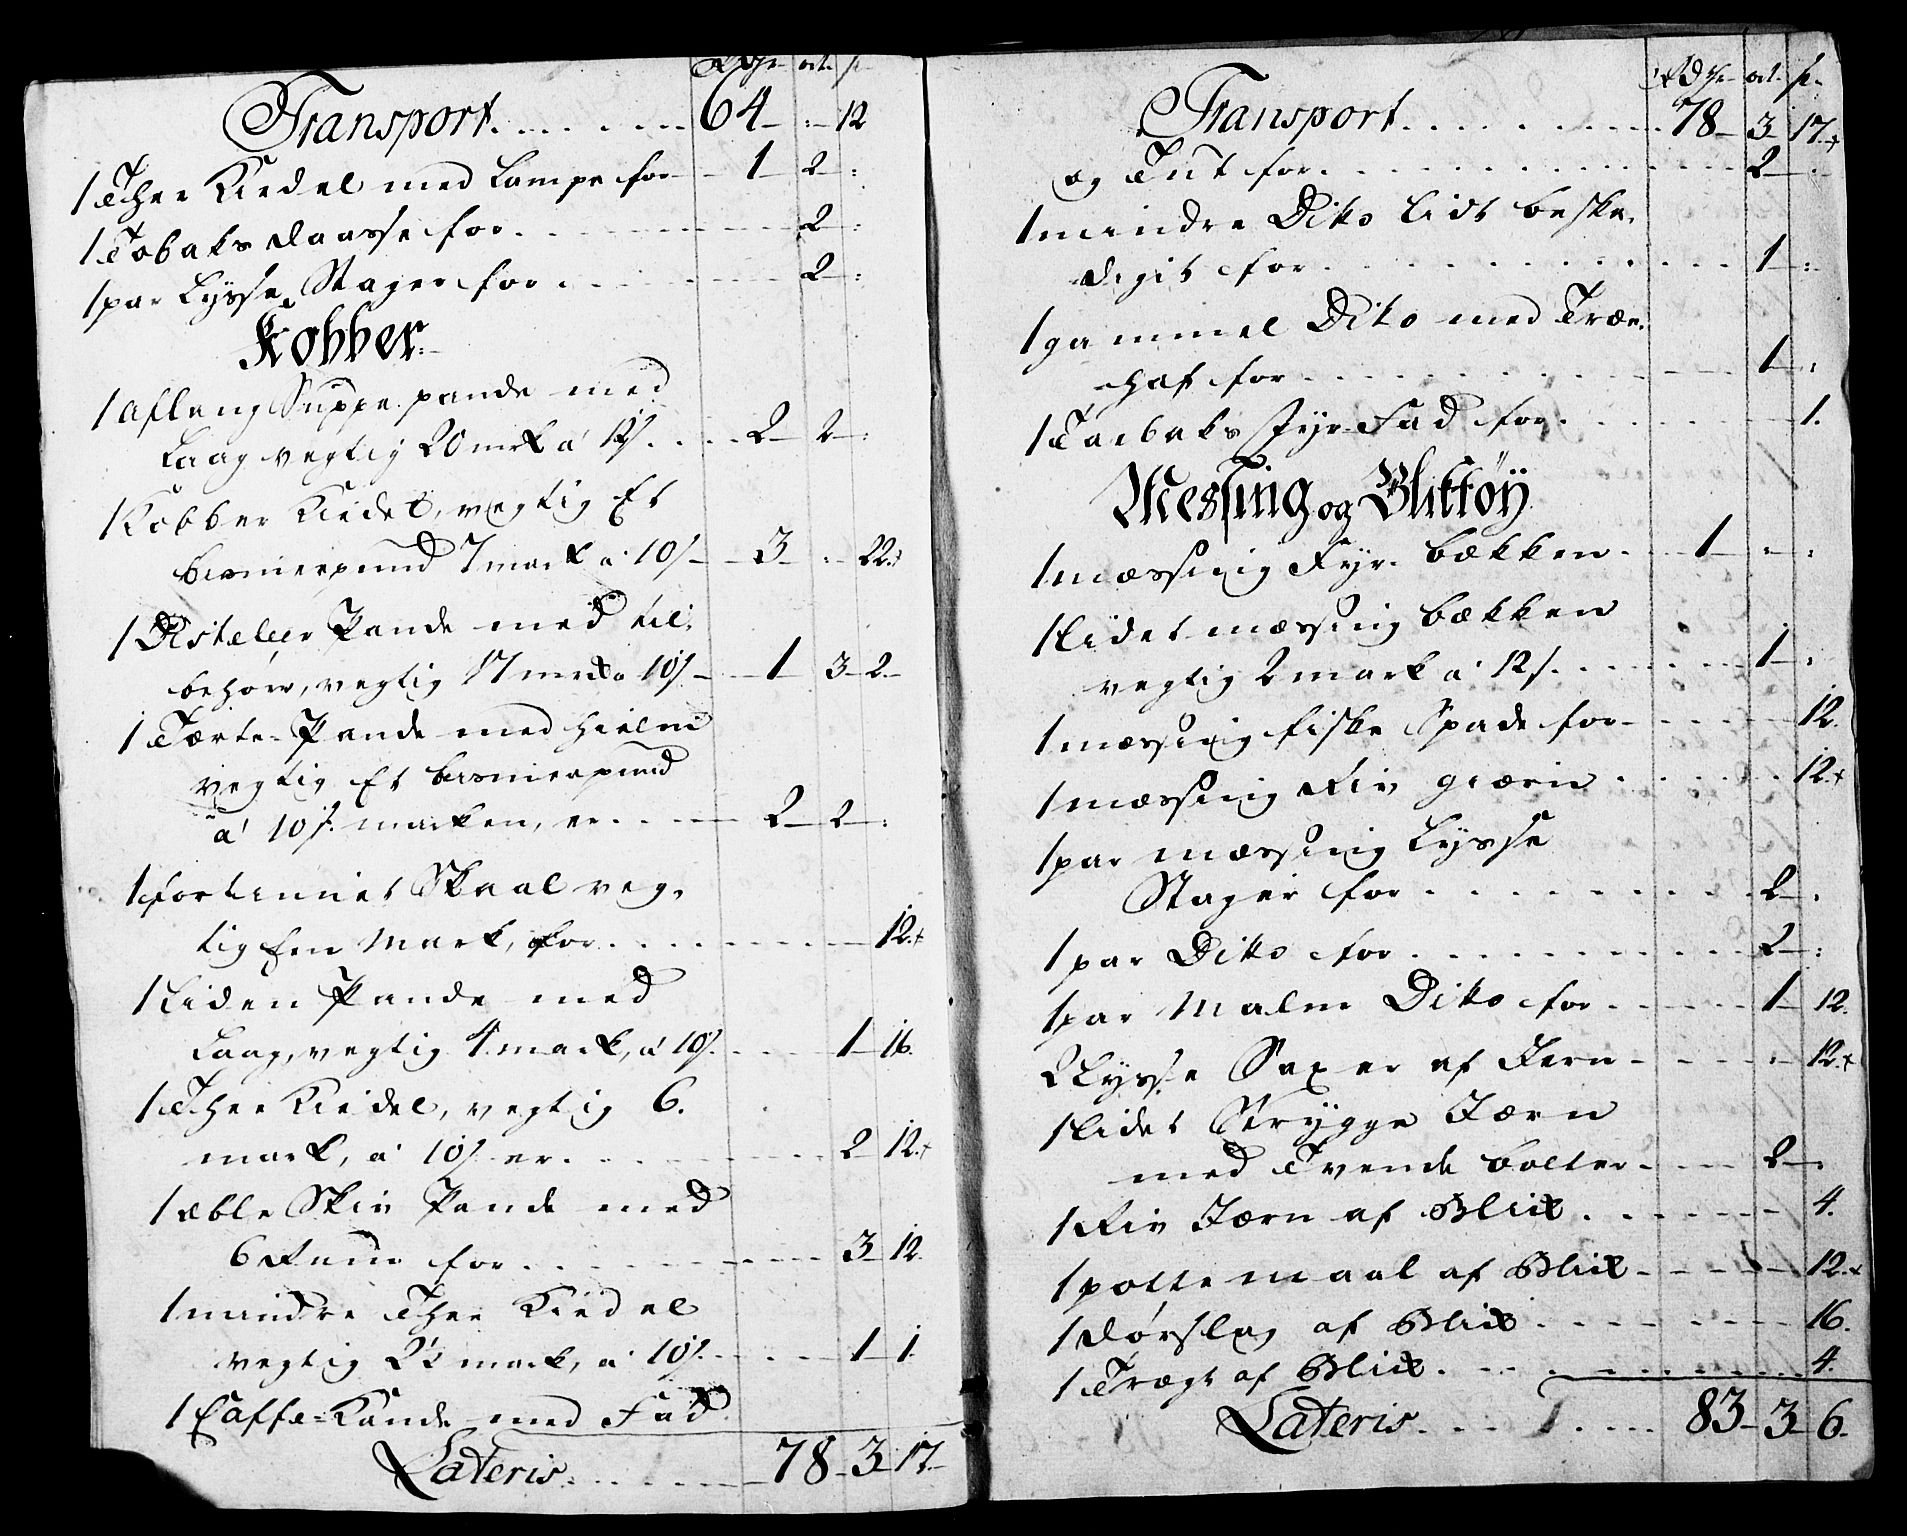 Rdlr ort. s.
Transport. . . . . . . 64 - : - 12
1 Thee Kiedel med Lampe for - 1 - 2 - :
1 Tobaks daasse for. - - - - 2 - :
1 par Lysse Stager for . - - - 2 - :
Kobber.
1 aflang Suppe pande med
Laag vegtig 20 mrk a 12 s. . . . 2 - 2 - :
1 Kobber Kiedel, vegtig Et
bismerpund 7 mark a 10 s - - 3 - : - 22.
1 Disteleer Pande med til,
behør, vegtig 17 mrk a 10 s. - - 1 3 - 2 -
1 Tærte-Pande med hielm
vegtig Et bismerpund
a 10 s. marken, er. . . - - 2 - 2 - :
1 fortinnet Skaal veg,
tig Een Mark, for. . . . - - - 12.
1 Liden Pande med
Laag, vegtig 4 mark, a 10 s. . . - 1 - 16.
1 Thee Kiedel, vegtig 6.
mark, a 10 s er. . - - - - 2 12.
1 æble Skiv Pande med
6 Rum for. . . . - - - 3 12.
1 mindre Thee Kiedel
vegtig 2½ mark, a 10 s. - - - 1 - 1.
1 Caffe=Kande med Fad
Lateris. . . . . . 78 - 3 - 17 -
Rdlr ort. s.
Transport. . . . . . . . . 78 - 3 - 17.
og Tut for. . . . . . . . - 2 - .
1 mindre Dito lidt beska,
digit for. . . . . . . . - 1 - :
1 gammel Dito med Træe,
haf for. . . . . . . . - 1 - :
1 Taabaks Fyr-Fad for. . . . . . - 1.
Messing og Bliktøy
1 messing Fyr-bækken. - - 1 - - :
1 lidet messing bækken
vegtig 2 mark a 12 s. . . . . - 1 - :
1 messing fiske Spade for - - - - 12.
1 messing Riv giærn . . . . . . 12.
1 par messing Lysse
Stager for . . . . . . - 2 - .
1 par Dito for. . . . . . . . - 2 - :
1 par Malm Dito for . . . - - 1 12.
2 Lysse Saxer af Jern - - - - 12.
1 lidet Strygge Jærn
med Tvende bolter. - - - 2 - .
1 Riv Jærn af Blik. . . . . . - 4.
1 potte maal af Blik - - - - - 12.
1 dørslag af Blik . - - - - - - 16.
1 Trægt af Blik. . . . . . . . . . 4.
Lateris. . . . . . . 83 - 3 - 6.